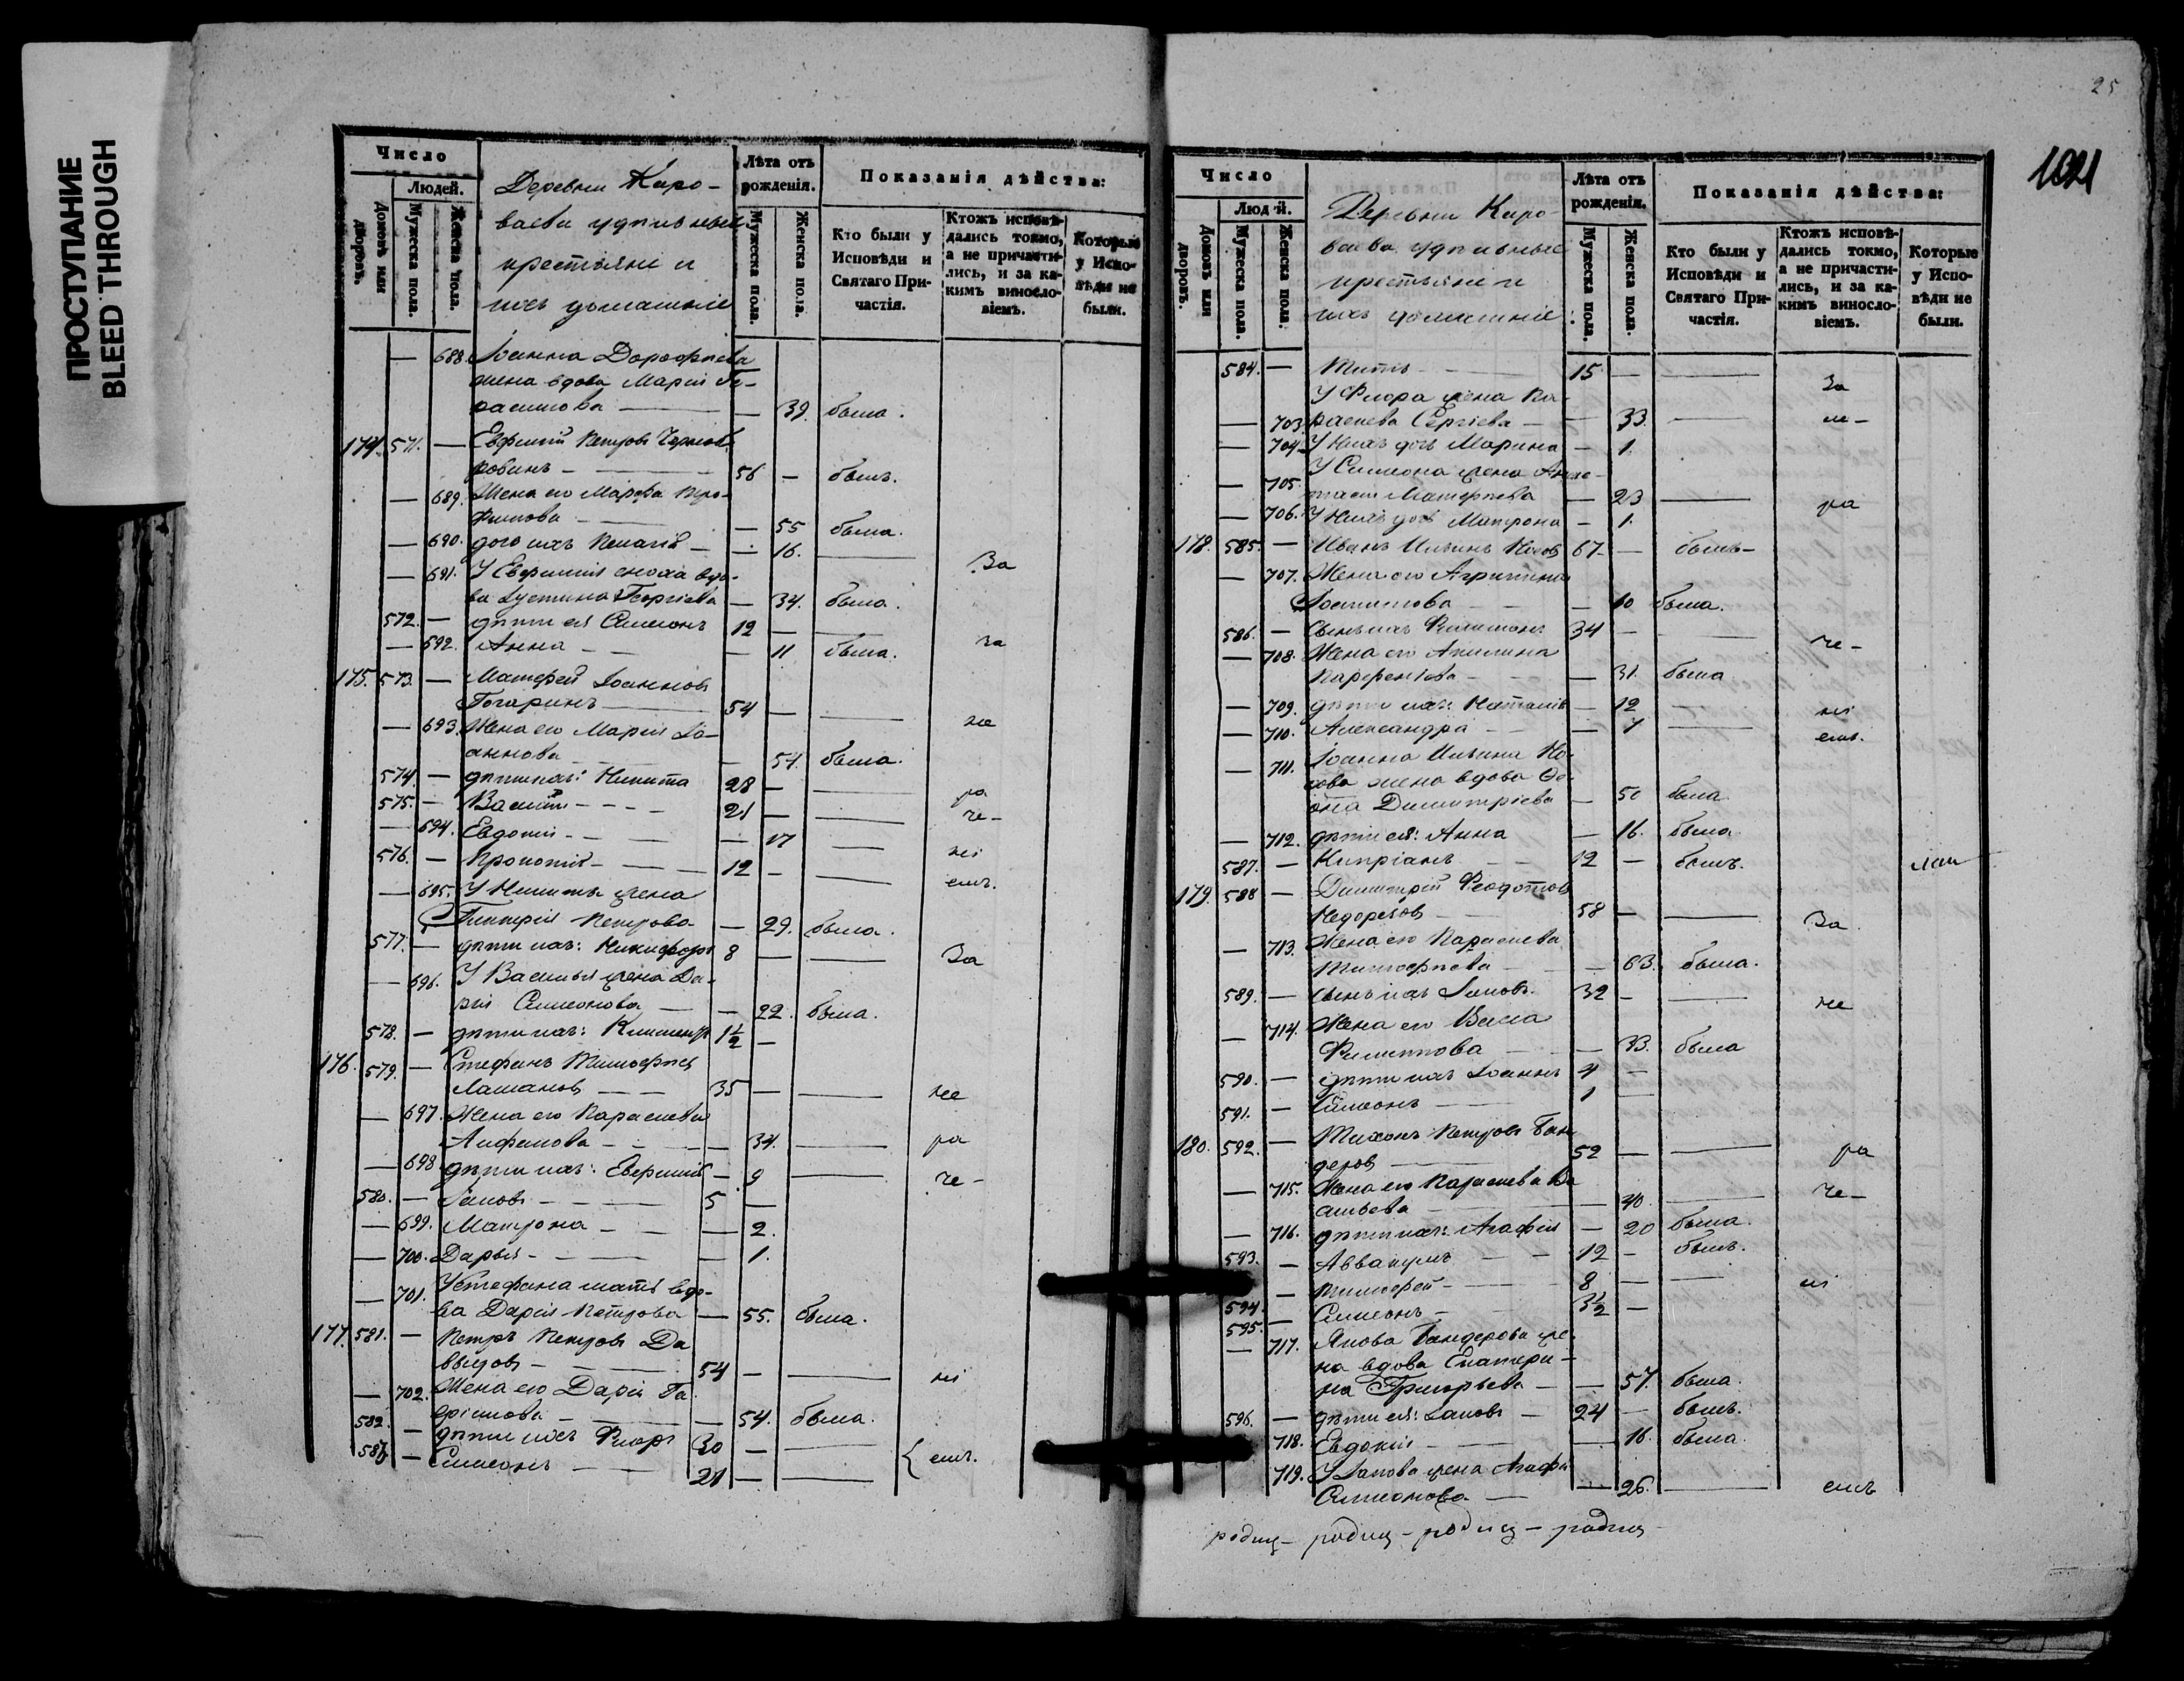 ПРОСТУПАНИЕ
BLEED THROUGH
Число
Людей.
Домовъ или дворовъ.
Мужеска пола.
Женска пола.
Деревни Каро-
ваева удѣльные
крестьяне и
ихъ домашніе
Лѣта отъ рожденія.
Мужеска пола.
Женска пола.
Показанія дѣйства:
Кто были у Исповѣди и Святаго При- частія.
Ктожъ исповѣ- дались токмо, а не причасти- лись, и за ка- кимъ виносло- віемъ.
Которые у Испо- вѣди не были.
— 688. Іоанна Дороѳеева
жена вдова Марія Ге-
расимова — — 39 была.
174. 571. — Евфимій Петровъ
56 — былъ.
— 689. Жена его Марѳа Тро-
фимова — — 55 была.
— 690. дочь ихъ Пелагія — — 16. — За
— 691. У Евфимія сноха вдо-
ва Іустина Георгіева — 34. была.
572. — дѣти ея Симеонъ 12 — —
— 692. Анна — — 11 была. па
175. 573. — Матфей Іоанновъ
Гогаринъ — 54 — — не
— 693. Жена его Марія Іо-
аннова — — 54. была.
574. — дѣти ихъ: Никита 28 — — ра
575. — Василій — 21 — — че-
— 694. Евдокія — — 17 — ні
576. — Прокопій — 12 — — емъ.
— 695. У Никиты жена
Гликерія Петрова — 29. была.
577. — дѣти ихъ: Никифоръ 8 — — За
— 696. У Василья жена Да-
рія Симеонова — — 22. была.
578. — дѣти ихъ: Климентъ 1½ —
176. 579. — Стефанъ Тимоѳеевъ
Лашановъ — 35 — — не
— 697. Жена его Параскева
Анфимова — — 34. — ра
— 698 дѣти ихъ: Евфимія — 9 — че-
580. — Іаковъ — 5 —
— 699. Матрона — — 2.
— 700. Дарья — — 1.
— 701. У Стефана мать вдо-
ва Дарія Петрова — 55. была.
177. 581. — Петръ Петровъ Да
выдовъ — 54 — — ні
— 702. Жена его Дарія Га
вріилова — — 54. была.
582. — дѣти ихъ Флоръ 30 — —
583. — Симеонъ — 21 — — { емъ.
25
Число
Людей.
Домовъ или дворовъ.
Мужеска пола.
Женска пола.
Деревни Каро-
ваева удѣльные
крестьяне и
ихъ домашніе
Лѣта отъ рожденія.
Мужеска пола.
Женска пола.
Показанія дѣйства:
Кто были у Исповѣди и Святаго При- частія.
Ктожъ исповѣ- дались токмо, а не причасти- лись, и за ка- кимъ виносло- віемъ.
Которые у Испо- вѣди не были.
584. — Титъ — 15 — — За
У Флора жена Па-
— 703. раскева Сергіева — 33. — не-
— 704. У нихъ дочь Марина — 1.
У Симеона жена Анас-
— 705. тасія Матфеева — 23 — ра
— 706. У нихъ дочь Матрона — 1.
178. 585. — Иванъ Ильинъ Носовъ 67 — былъ —
— 707. Жена его Агрипина
— была.
586. — Сынъ ихъ Филимонъ 34 — — че-
— 708. Жена его Акилина
Парфентьева — — 31. была
— 709. дѣти ихъ: Наталія — 12 — ні
— 710. Александра — — 7 — емъ.
— 711. Іоанна Ильина Но-
сова жена вдова Ѳе-
Димитріева — 50 была
— 712. дѣти ея: Анна — 16. была
587. — Кипріанъ — 12 — былъ.
179. 588 — Димитрій Ѳеодотовъ
Недорезовъ 58 — — За
— 713. Жена его Параскева
Тимоѳеева — — 63. была.
589. — Сынъ ихъ Іаковъ 32 — — не
— 714. Жена его Васса
Филиппова — — 33. была
590. — дѣти ихъ Іоаннъ 4 —
591. — Симеонъ — 1 —
180. 592. — Тихонъ Петровъ Бан
деровъ — 52 — — ра
— 715. Жена его Параскева Ва
сильева — — 40. — че-
— 716. дѣти ихъ: Агафія — 20 была.
593. — Аввакумъ — 12 — былъ.
— Тимоѳей — 8 — — ні
594. — Симеонъ — 3½ —
595.
— 717. Якова Бандерова же-
на вдова Екатери-
на Григорьева — — 57. была.
596. — дѣти ея: Іаковъ — 24 — былъ.
718. Евдокія — — 16. была.
719. У Іакова жена Агафія
Симеонова — — 26. — емъ
родиц- родиц- родиц- родиц